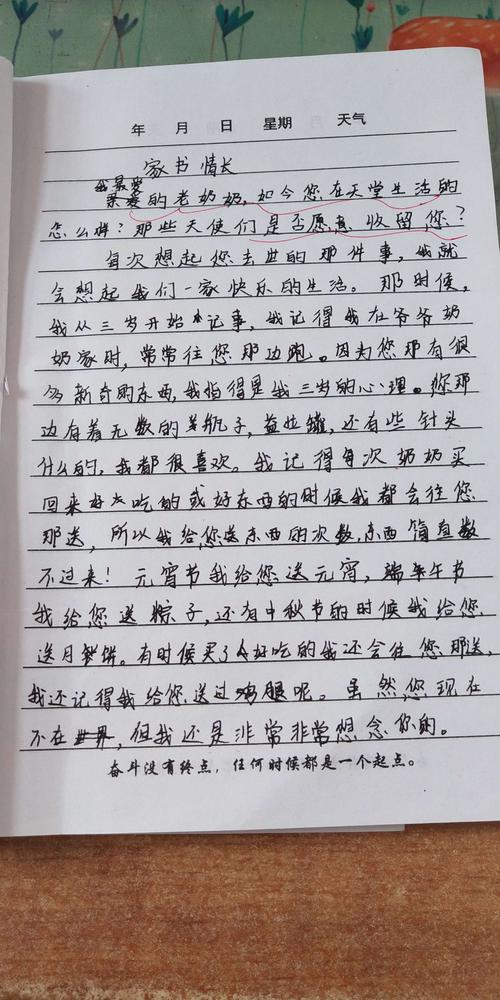 年 月 日 星期 天气
家书情长
我最爱
亲爱的老奶奶,如今您在天堂生活的
怎么样?那些天使们是否愿意收留您?
每次想起您去世的那件事,我就
会想起我们一家快乐的生活。那时候,
我从三岁开始记事,我记得我在爷爷奶
奶家时,常常往您那边跑。因为您那有很
多新奇的东西,我指得是我三岁的心理。您那
边有着无数的羊瓶子,益壮罐,还有些针头
什么的,我都很喜欢。我记得每次奶奶买
回来好点吃的或好东西的时候我都会往您
那送,所以我给您送东西的次数,东西简直数
不过来!元宵节我给您送元宵,端午节
我给您送粽子,还有中秋节的时候我给您
送月饼。有时候买了好吃的我还会往您那送,
我还记得我给您送过鸡腿呢。虽然您现在
不在世界,但我还是非常非常想念你的。
奋斗没有终点,任何时候都是一个起点。